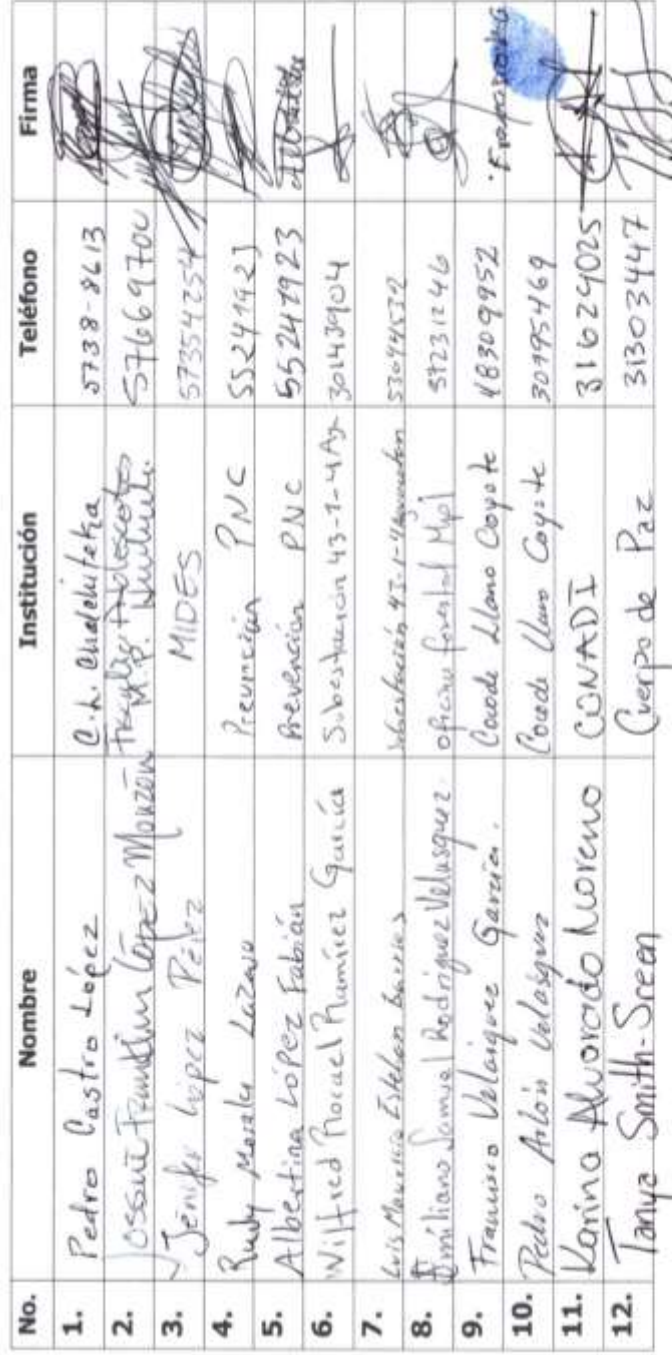 No. Nombre Institución Teléfono Firma
1. Pedro Castro López C.L. 5738-8613
2. Franklim López Monzón 57669700
M.P.
3. Jenifer López Pérez MIDES 57354254
4. Rudy Morales Lázaro Prevención PNC 55241923
5. Albertina López Fabián Prevención PNC 55241923
6. Wilfred Ramírez García Subestación 43-1-4 30143904
7. Luis Mauricio Esteban Barrios Subestación 43-1-4 53694532
8. Emiliano Samuel Rodríguez Velasquez. oficina forestal Mpl 57231246
9. Francisco Velásquez García. Cocode Llano Coyote 48309952
10. Pedro Velasquez Cocode Llano Coyote 30795469
11. Karina Alvarado Moreno CONADI 31624025
12. Tanya Smith-Sreen Cuerpo de Paz 31303447